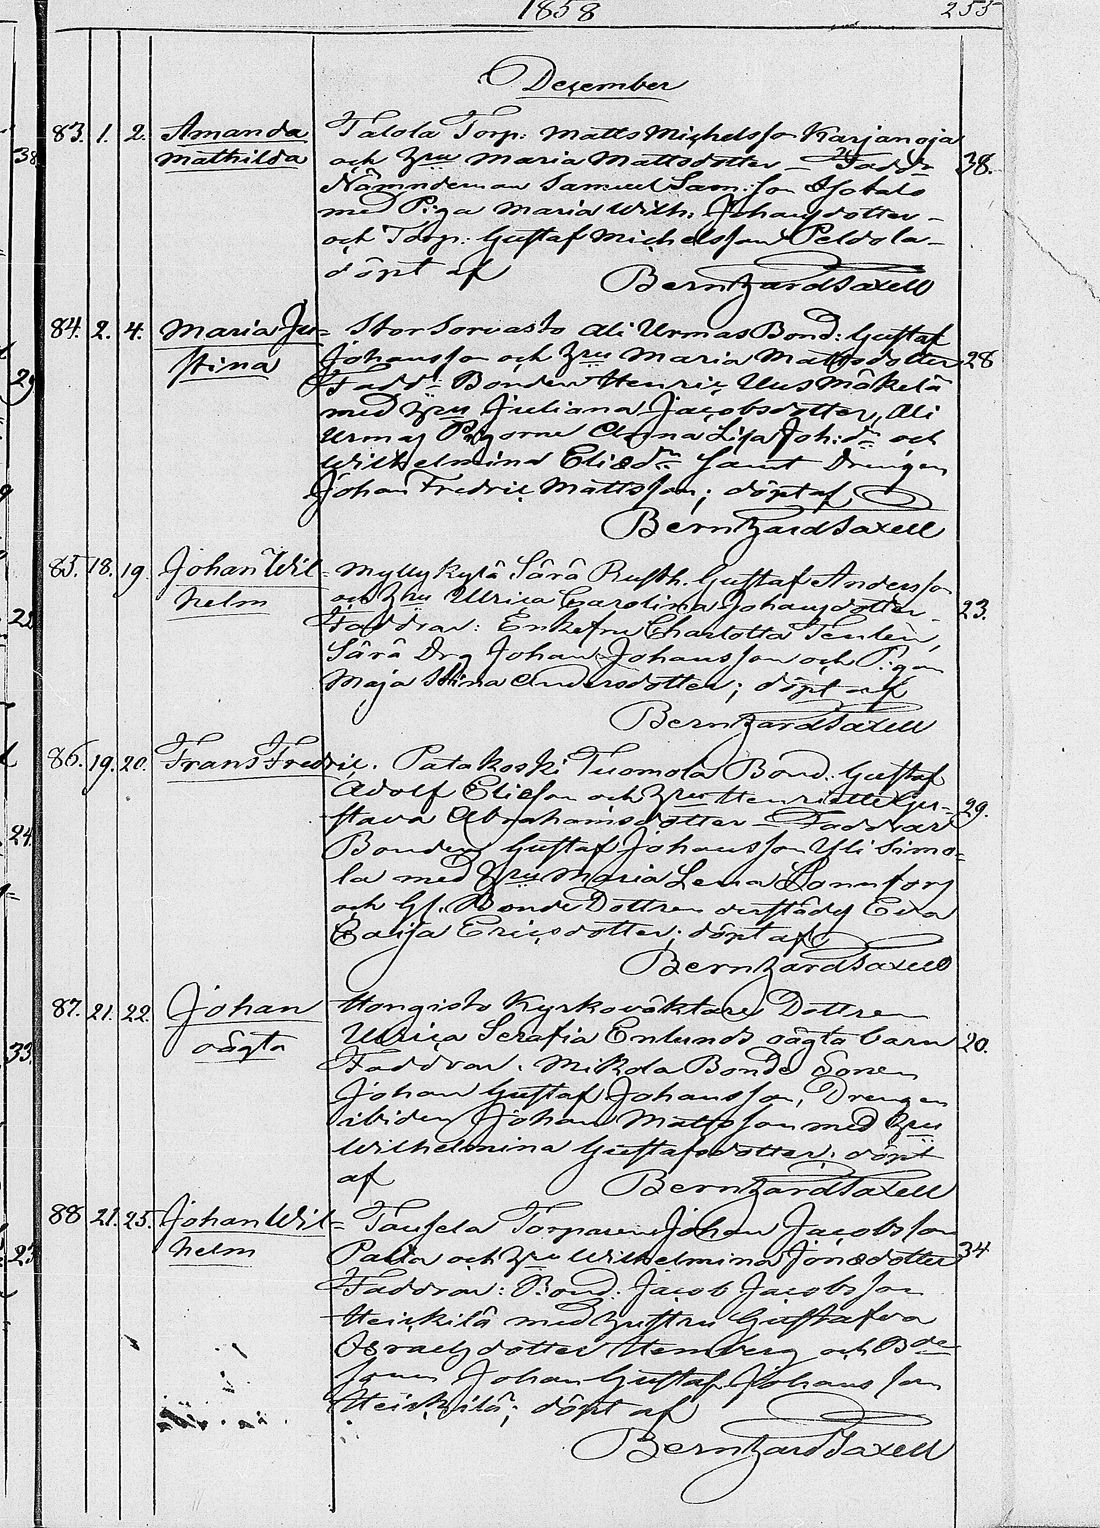 1858
255
December
83. 1. 2. Amanda Talola Torp. Matts Michelsson Karjanoja
Mathilda och Hru Maria Mattsdotter - Faddr 38.
Nämndeman Samuel Sam:son
med Piga Maria Wilh: Johansdotter -
och Torp. Gustaf Michelsson Peldola -
döpt af Bernhard Saxell
84. 2. 4. Maria Ju= Storsorvasto Ali Urmas Bond. Gustaf
stina Johansson och Hru Maria Mattsdotter 28
Fadd: Bonden Henric Uusmäkelä
med Hru Juliana Jacobsdotter, Ali
Urmas Pigorne Anna Lisa Joh:dr och
Wilhelmina Eliædr samt Drengen
Johan Fredric Mattsson; döpt af
Bernhard Saxell
85. 18. 19. Johan Wil= Myllykylä Särä Rusth. Gustaf Andersson
helm och Hru Ulrica Carolina Johansdotter. 23.
Faddrar: Enkefru Charlotta
Särä Drg Johan Johansson och Pigan
Maja Stina Andersdotter; döpt af
Bernhard Saxell
86. 19. 20. Frans Fredric. Patakoski Tuomola Bond. Gustaf
Adolf Eliæson och Hru Henriette Gu= 29.
stava Abrahamsdotter - Faddrar
Bonden Gustaf Johansson Yli Simo=
la med Hru Maria Lena
och Gl. Bonde Dottren derstädes Eva
Caisa Ericsdotter; döpt af
Bernhard Saxell
87. 21. 22. Johan Hongisto Kyrkoväktare Dottren
oägta Ulrica Serafia Enlunds oägta barn 20.
Faddrar. Mikola Bonde Sonen
Johan Gustaf Johansson, Drengen
ibiden Johan Mattsson med Hru
Wilhelmina Gustafsdotter; döpt
af Bernhard Saxell
88 21. 25. Johan Wil= Torparen Johan Jacobsson
helm och Hru Wilhelmina Jonædotter 34
Faddrar: Bond. Jacob Jacobsson
Heickilä med hustru Gustafva
Israelsdotter och Bde
sonen Johan Gustaf Johansson
Heickilä; döpt af
Bernhard Saxell